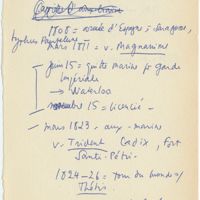 1808 = armée d'Espagne = Saragosse,
mars 1811 = v. Magnanime
juin 15 = quitte marine pr garde
Impériale
→ Waterloo
novembre 15 = licencié.
- mars 1823 - aux - marine
v. Trident Cadix, fort
Santi-Petri.
1824-26 = tour du monde s/
Thétis.